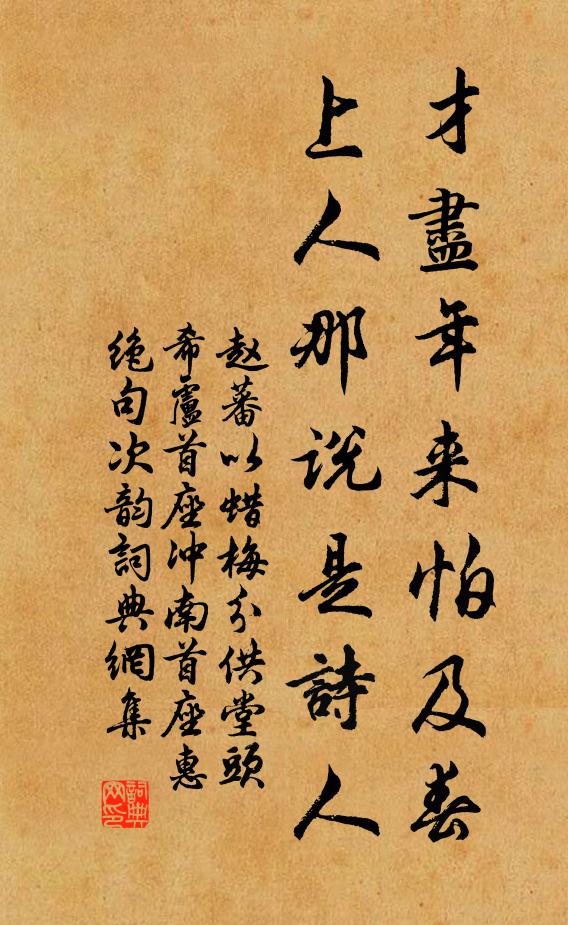 才盡年来怕及春
上人那说是詩人
赵蕃以蜡梅分供堂頭
希廬首座冲南首座惠
绝句次韵詞典網集
詞典
网印